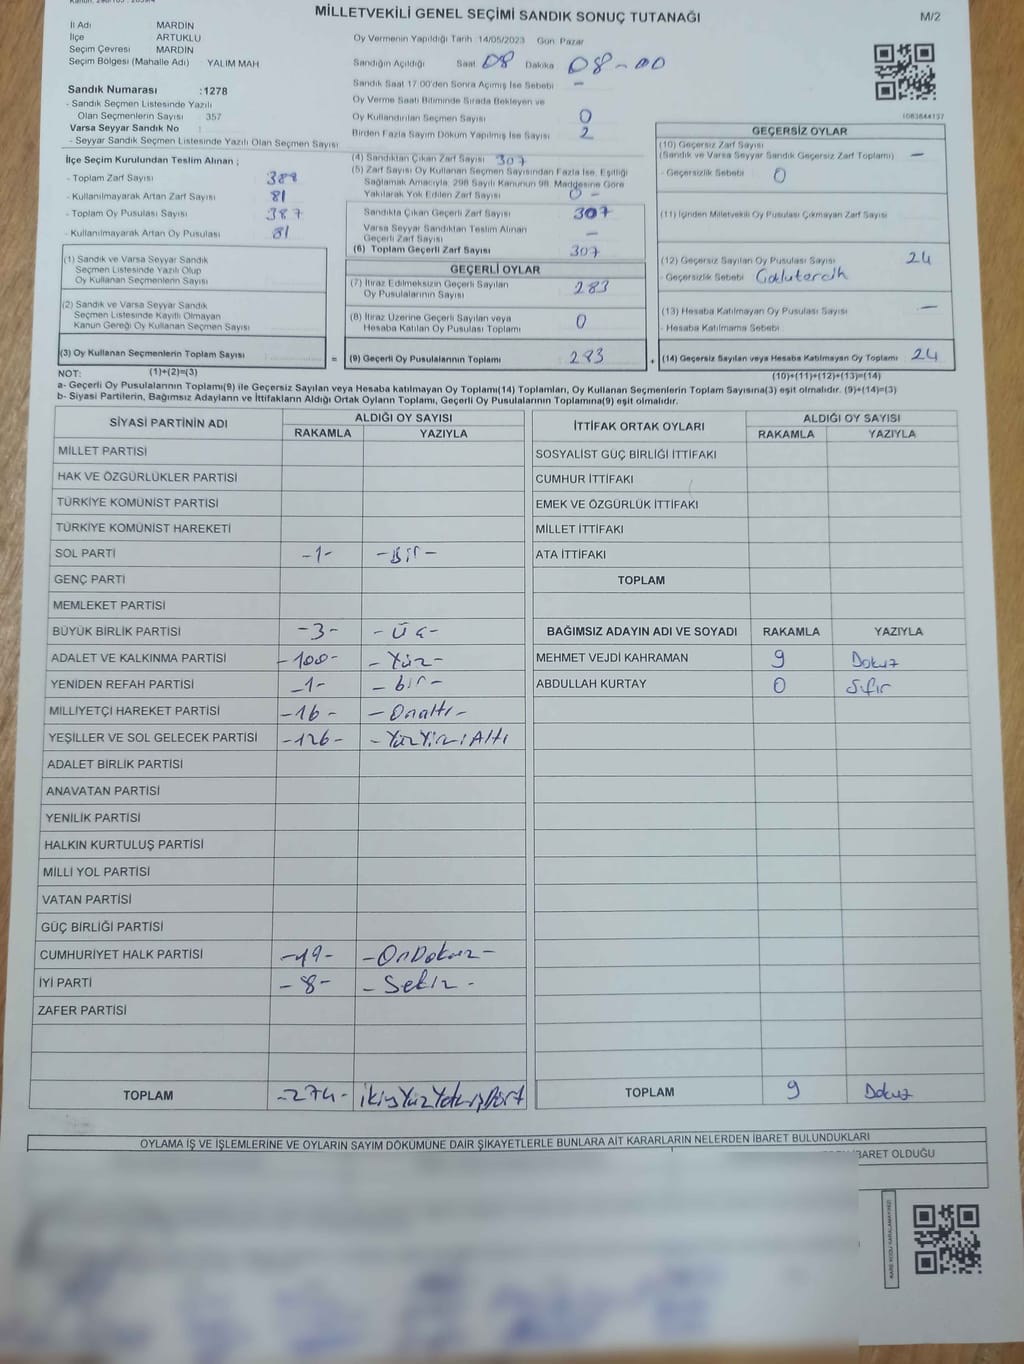 MİLLETVEKİLİ GENEL SEÇİMİ SANDIK SONUÇ TUTANAĞI
M/2
İl Adı MARDİN
İlçe ARTUKLU
Seçim Çevresi MARDİN
Seçim Bölgesi (Mahalle Adı) YALIM MAH
Oy Vermenin Yapıldığı Tarih 14/05/2023 Gün Pazar
Sandığın Açıldığı Saat 08 Dakika 08-00
Sandık Saat 17.00'den Sonra Açımış İse Sebebi -
Oy Verme Saati Bitiminde Sırada Bekleyen ve
Oy Kullandırılan Seçmen Sayısı 0
Birden Fazla Sayım Döküm Yapılmış İse Sayısı 2
Sandık Numarası :1278
- Sandık Seçmen Listesinde Yazılı
Olan Seçmenlerin Sayısı : 357
Varsa Seyyar Sandık No :
- Seyyar Sandık Seçmen Listesinde Yazılı Olan Seçmen Sayısı
İlçe Seçim Kurulundan Teslim Alınan ;
- Toplam Zarf Sayısı 388
- Kullanılmayarak Artan Zarf Sayısı 81
- Toplam Oy Pusulası Sayısı 387
- Kullanılmayarak Artan Oy Pusulası 81
(1) Sandık ve Varsa Seyyar Sandık
Seçmen Listesinde Yazılı Olup
Oy Kullanan Seçmenlerin Sayısı
(2) Sandık ve Varsa Seyyar Sandık
Seçmen Listesinde Kayıtlı Olmayan
Kanun Gereği Oy Kullanan Seçmen Sayısı
(3) Oy Kullanan Seçmenlerin Toplam Sayısı =
(4) Sandıktan Çıkan Zarf Sayısı 307
(5) Zarf Sayısı Oy Kullanan Seçmen Sayısından Fazla İse, Eşitliği
Sağlamak Amacıyla, 298 Sayılı Kanunun 98. Maddesine Göre
Yakılarak Yok Edilen Zarf Sayısı 0 -
Sandıkta Çıkan Geçerli Zarf Sayısı 307
Varsa Seyyar Sandıktan Teslim Alınan
Geçerli Zarf Sayısı -
(6) Toplam Geçerli Zarf Sayısı 307
GEÇERLİ OYLAR
(7) İtiraz Edilmeksizin Geçerli Sayılan
Oy Pusulalarının Sayısı 283
(8) İtiraz Üzerine Geçerli Sayılan veya
Hesaba Katılan Oy Pusulası Toplamı 0
(9) Geçerli Oy Pusulalarının Toplamı 283 +
1083844137
GEÇERSİZ OYLAR
(10) Geçersiz Zarf Sayısı
(Sandık ve Varsa Seyyar Sandık Geçersiz Zarf Toplamı) -
- Geçersizlik Sebebi 0
(11) İçinden Milletvekili Oy Pusulası Çıkmayan Zarf Sayısı
(12) Geçersiz Sayılan Oy Pusulası Sayısı 24
- Geçersizlik Sebebi
(13) Hesaba Katılmayan Oy Pusulası Sayısı -
- Hesaba Katılmama Sebebi
(14) Geçersiz Sayılan veya Hesaba Katılmayan Oy Toplamı 24
NOT: (1)+(2)=(3)
(10)+(11)+(12)+(13)=(14)
a- Geçerli Oy Pusulalarının Toplamı(9) ile Geçersiz Sayılan veya Hesaba katılmayan Oy Toplamı(14) Toplamları, Oy Kullanan Seçmenlerin Toplam Sayısına(3) eşit olmalıdır. (9)+(14)=(3)
b- Siyasi Partilerin, Bağımsız Adayların ve İttifakların Aldığı Ortak Oyların Toplamı, Geçerli Oy Pusulalarının Toplamına(9) eşit olmalıdır.
SİYASİ PARTİNİN ADI
ALDIĞI OY SAYISI
RAKAMLA YAZIYLA
MİLLET PARTİSİ
HAK VE ÖZGÜRLÜKLER PARTİSİ
TÜRKİYE KOMÜNİST PARTİSİ
TÜRKİYE KOMÜNİST HAREKETİ
SOL PARTİ -1- -Bir-
GENÇ PARTİ
MEMLEKET PARTİSİ
BÜYÜK BİRLİK PARTİSİ -3- -Üç-
ADALET VE KALKINMA PARTİSİ -100- -Yüz-
YENİDEN REFAH PARTİSİ -1- -bir-
MİLLİYETÇİ HAREKET PARTİSİ -16- -Onaltı-
YEŞİLLER VE SOL GELECEK PARTİSİ -126- -YüzYirmiAltı
ADALET BİRLİK PARTİSİ
ANAVATAN PARTİSİ
YENİLİK PARTİSİ
HALKIN KURTULUŞ PARTİSİ
MİLLİ YOL PARTİSİ
VATAN PARTİSİ
GÜÇ BİRLİĞİ PARTİSİ
CUMHURİYET HALK PARTİSİ -19- -OnDokuz-
İYİ PARTİ -8- -Sekiz-
ZAFER PARTİSİ
TOPLAM -274- İkiyüzYetmişDört
İTTİFAK ORTAK OYLARI
ALDIĞI OY SAYISI
RAKAMLA YAZIYLA
SOSYALİST GÜÇ BİRLİĞİ İTTİFAKI
CUMHUR İTTİFAKI
EMEK VE ÖZGÜRLÜK İTTİFAKI
MİLLET İTTİFAKI
ATA İTTİFAKI
TOPLAM
BAĞIMSIZ ADAYIN ADI VE SOYADI RAKAMLA YAZIYLA
MEHMET VEJDİ KAHRAMAN 9 Dokuz
ABDULLAH KURTAY 0 Sıfır
TOPLAM 9 Dokuz
OYLAMA İŞ VE İŞLEMLERİNE VE OYLARIN SAYIM DÖKÜMÜNE DAİR ŞİKAYETLERLE BUNLARA AİT KARARLARIN NELERDEN İBARET BULUNDUKLARI
İBARET OLDUĞU